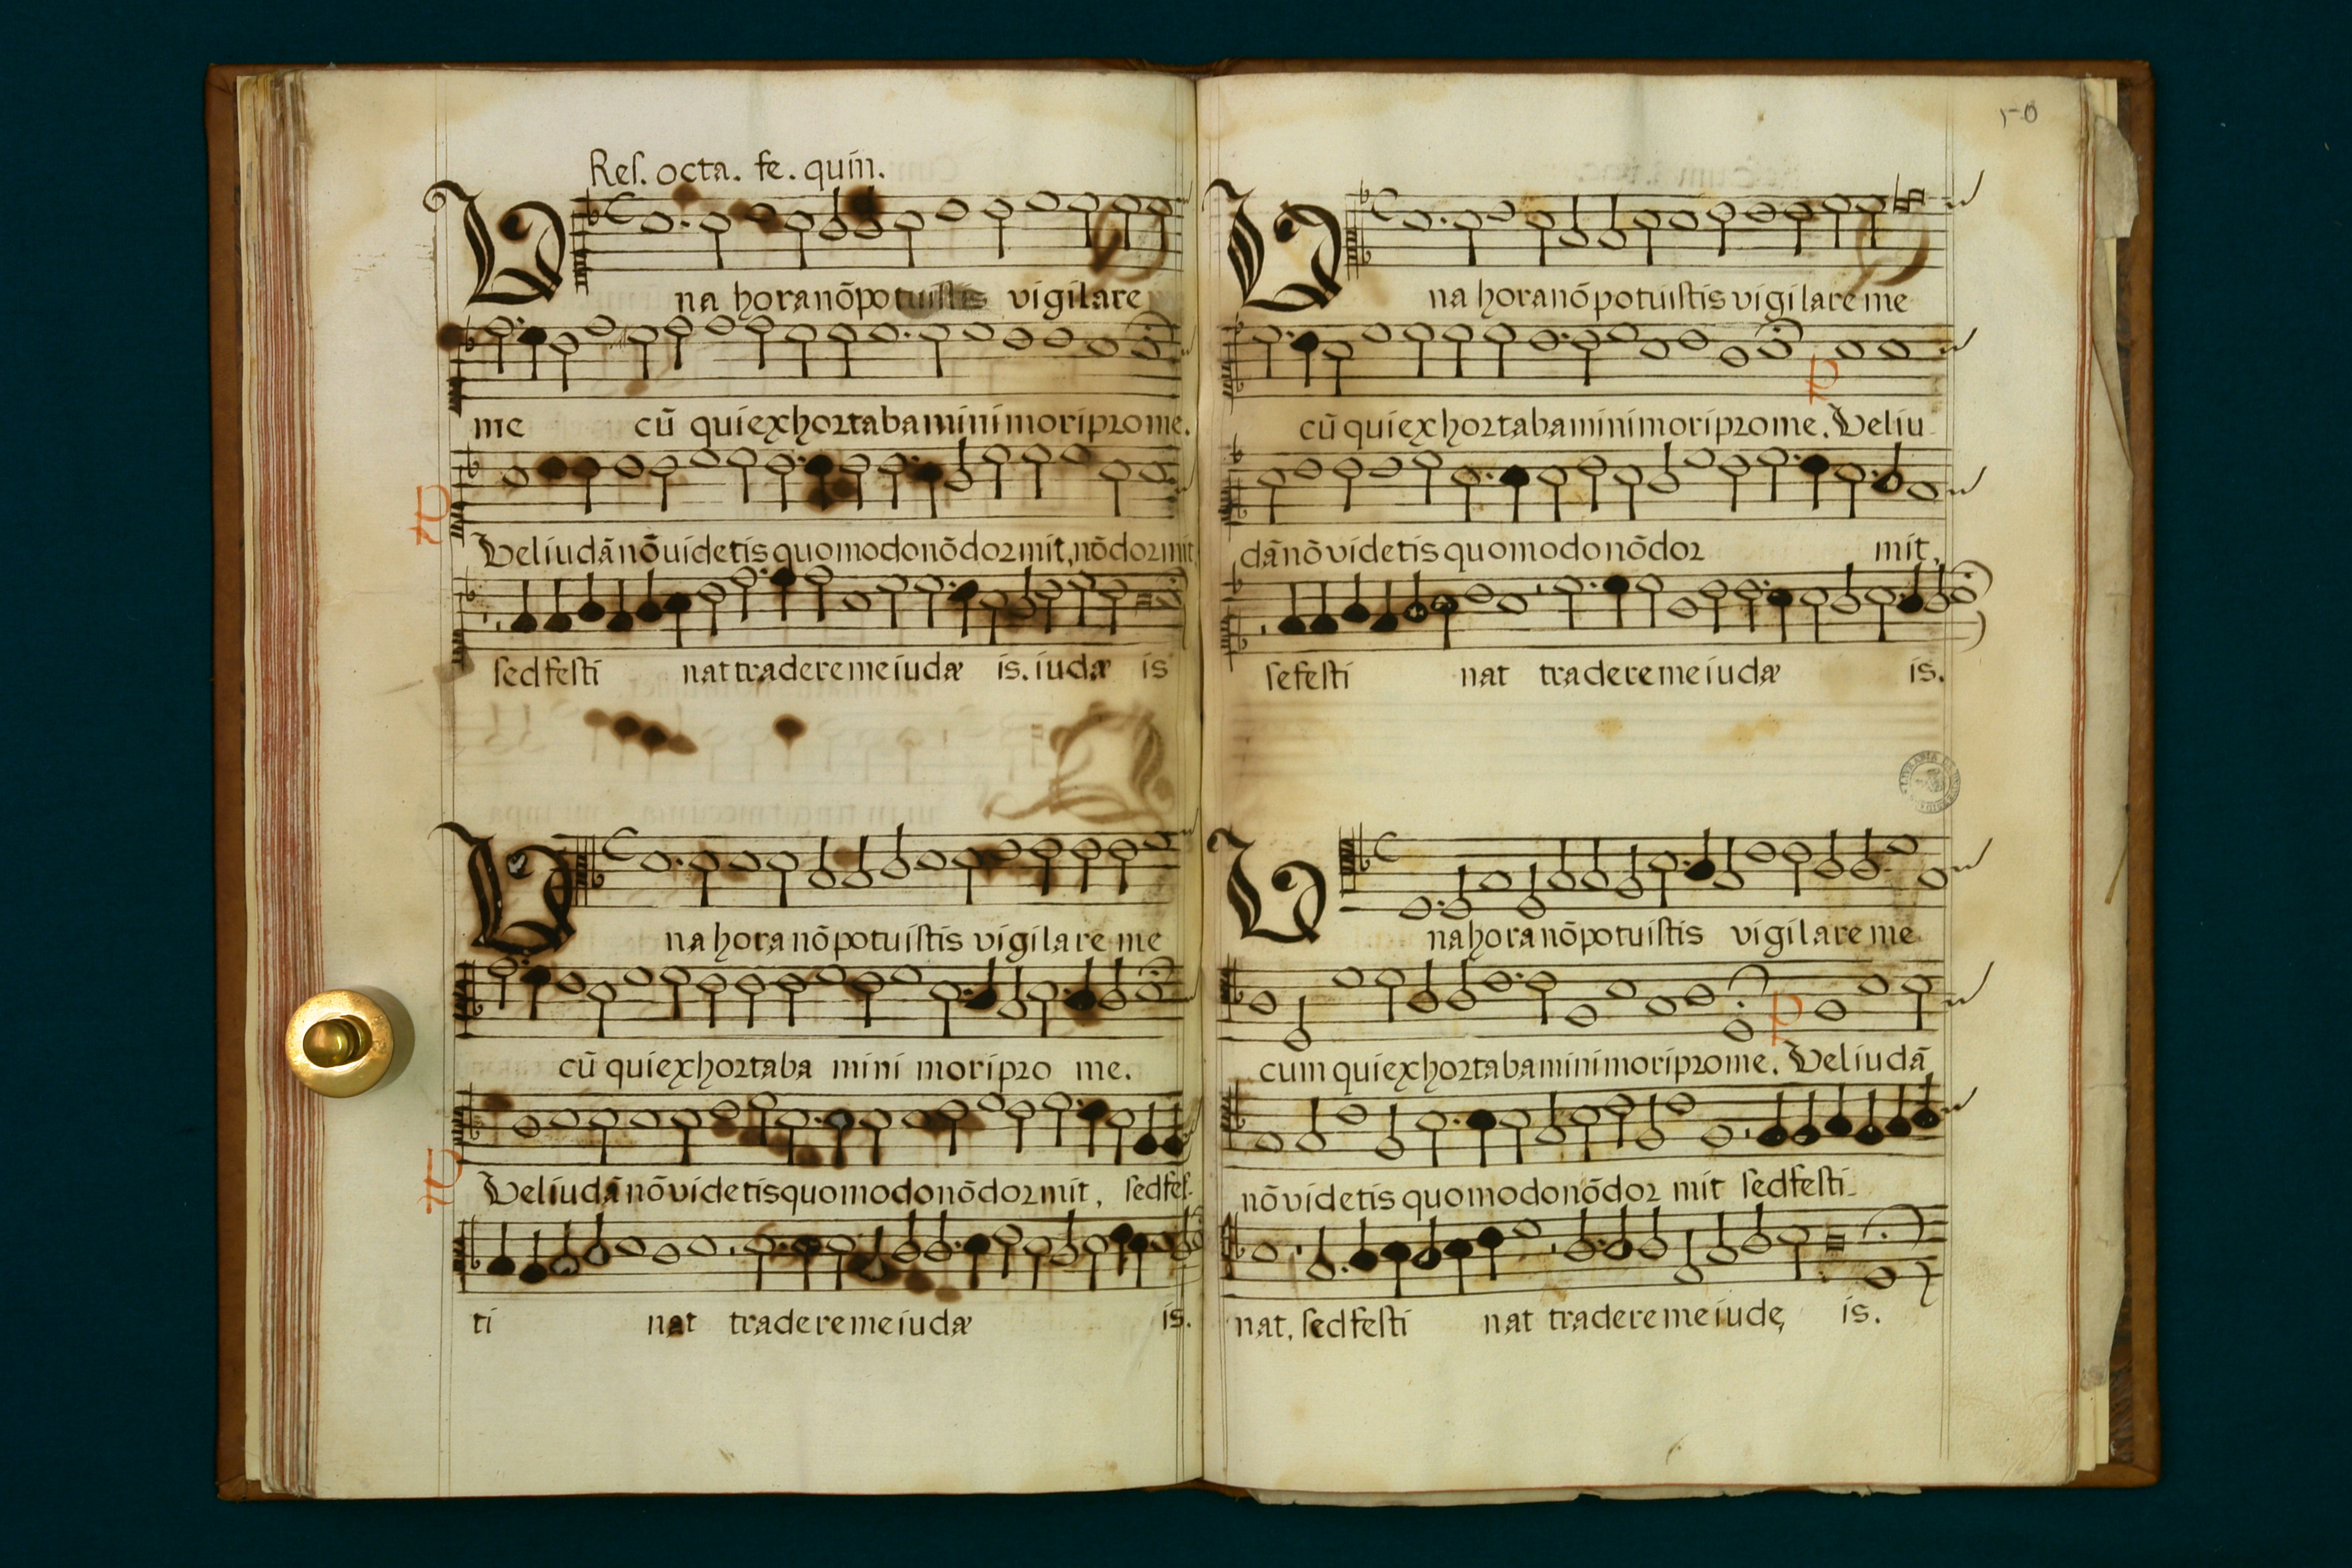 Reſ. octa. fe. quin.
Una horanōpotuiſtis vigilare
me cū quiexhortabaminimoripro me.
Veliudānōvidetisquomodonōdormit, nōdormit
ſedfeſti nat traderemeiudæ is. iudæ is
Una horanōpotuiſtis vigilare me
cū quiexhortaba mini moripro me.
Veliudānōvidetisquomodonōdormit, ſedfeſ-
ti nat traderemeiudæ is.
50
Una horanōpotuiſtis vigilare me
cū quiexhortabaminimoriprome. Veliu
dānōvidetis quomodonōdor mit,
ſefeſti nat traderemeiudæ is.
Unahoranōpotuiſtis vigilare me
cum quiexhortabaminimoriprome. Veliudā
nōvidetis quomodonōdor mit ſedfeſti-
nat, ſedfeſti nat traderemeiudę is.